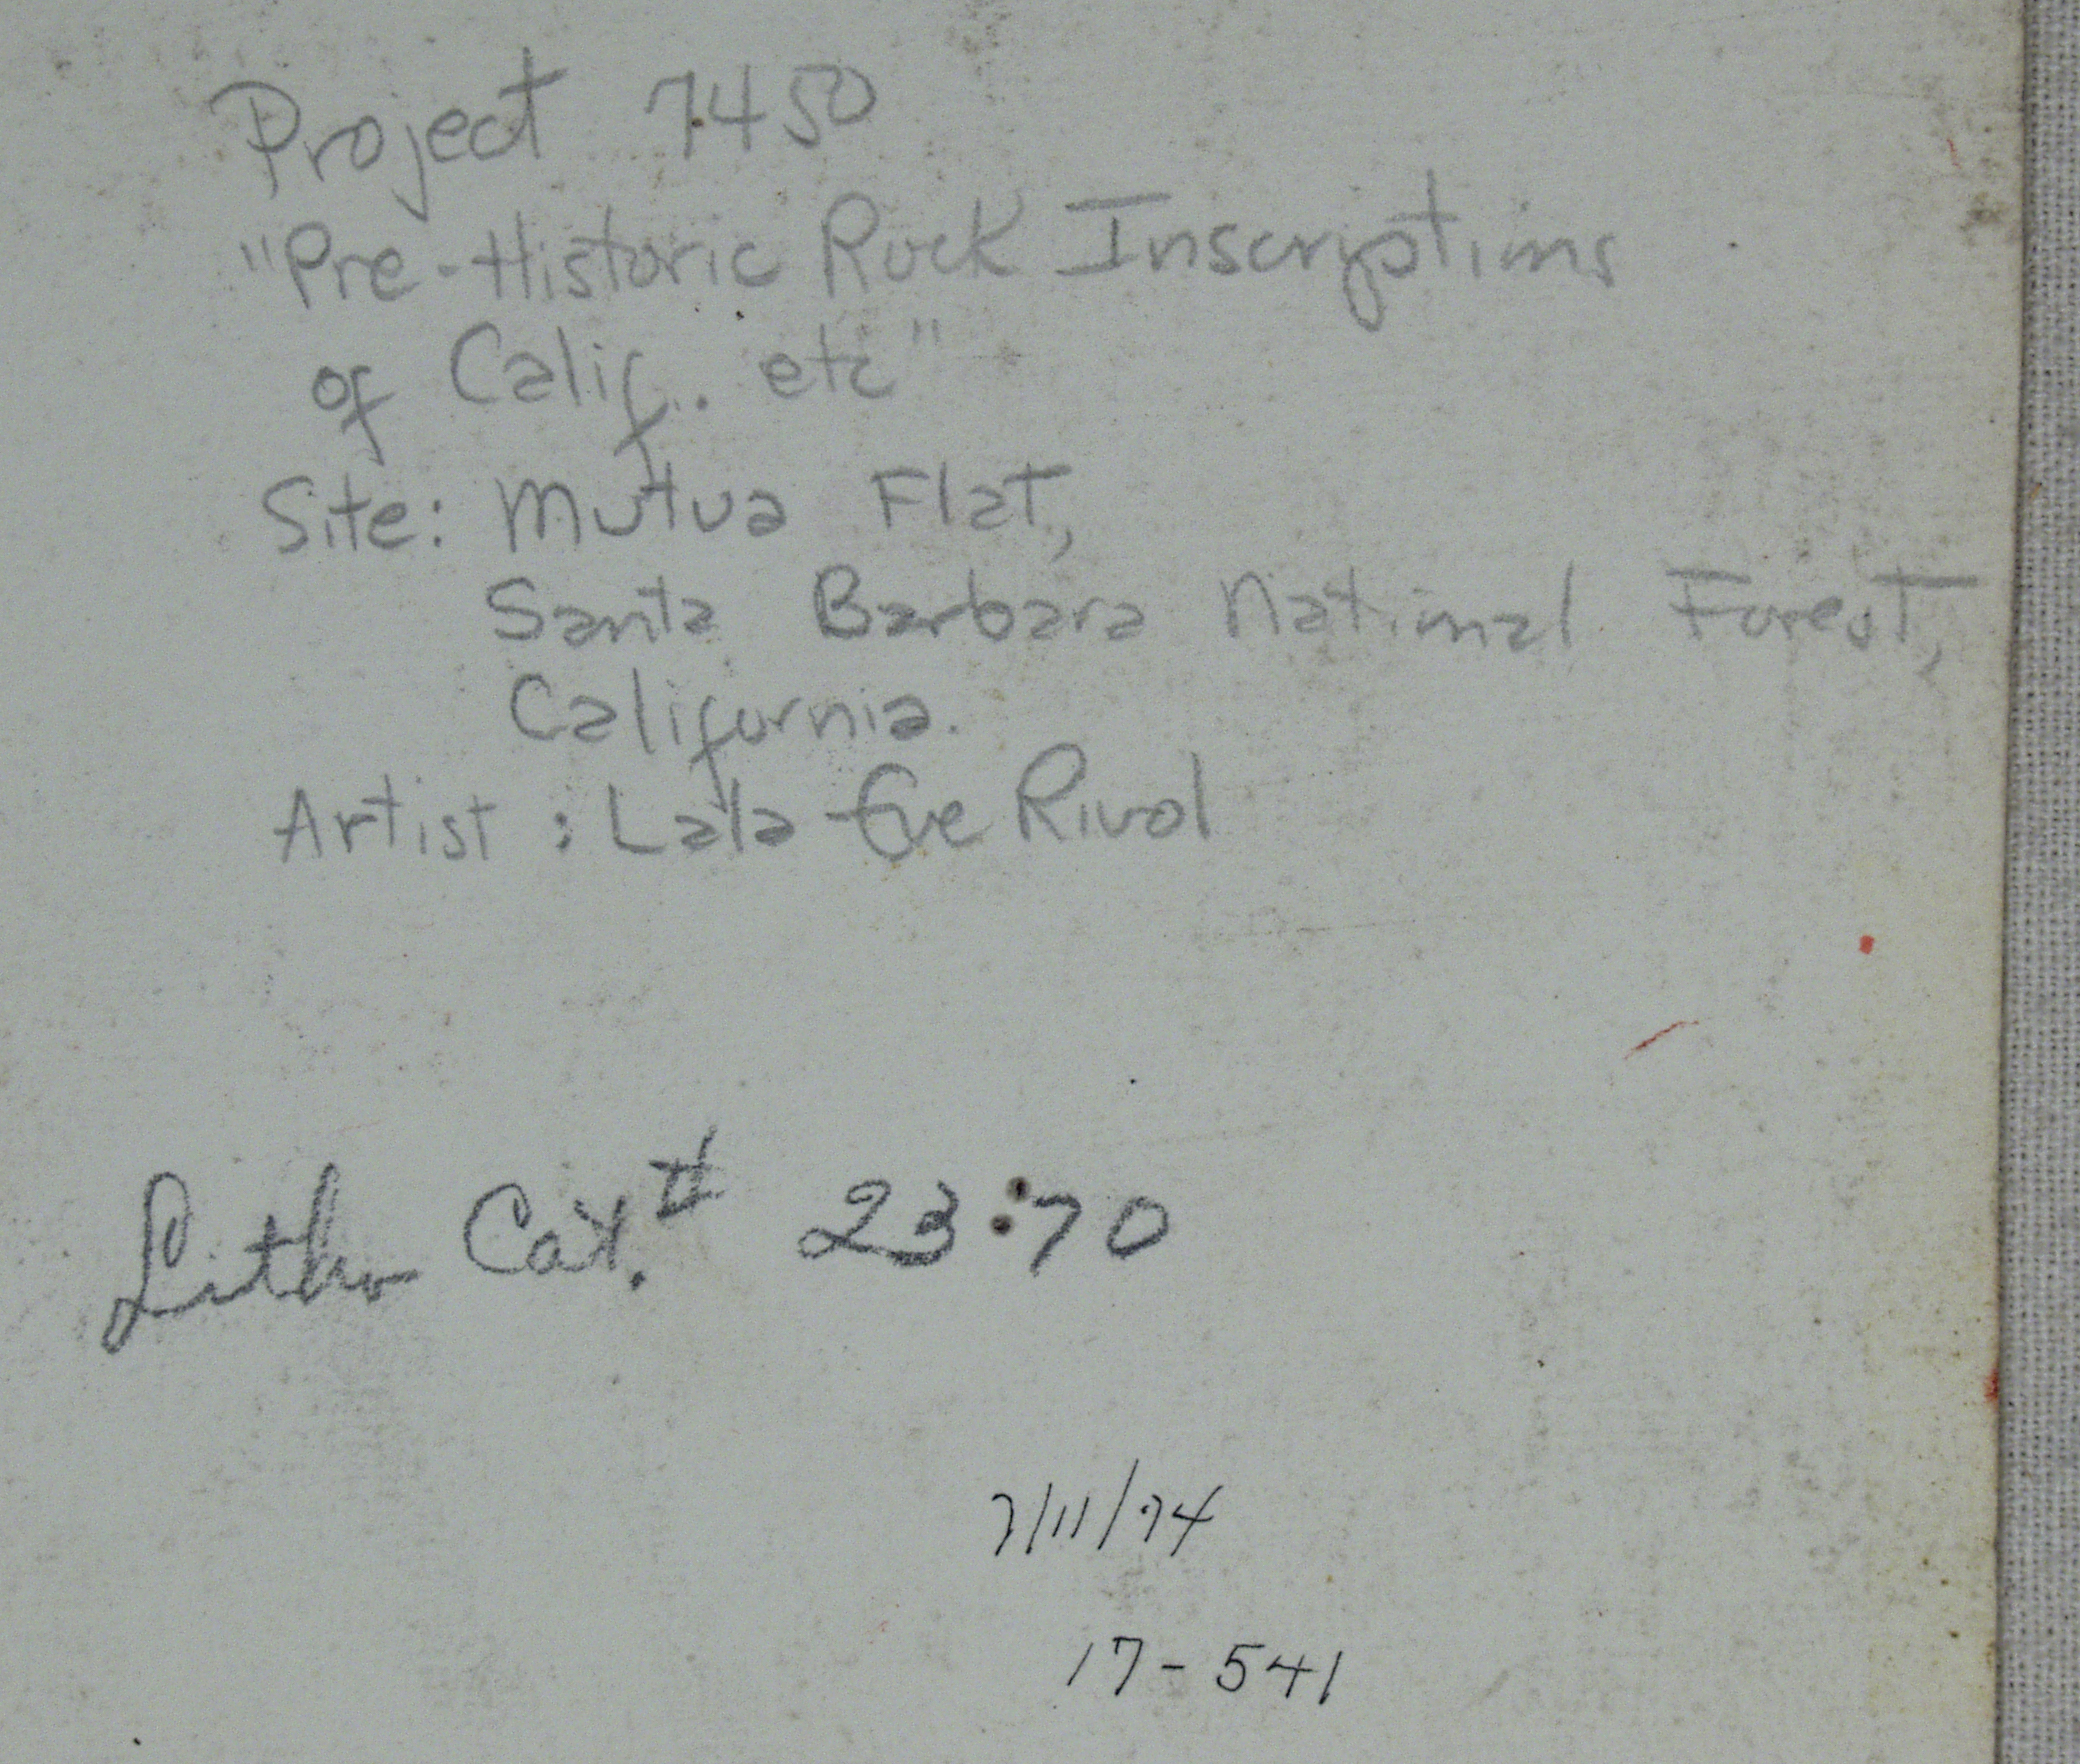 Project 7450
"Pre-Historic Rock Inscriptions
of Calif.. etc"
Site: Mutua Flat,
Santa Barbara National Forest,
California.
Artist: Lala Eve Rivol
Litho Cat. # 23:70
7/11/74
17-541